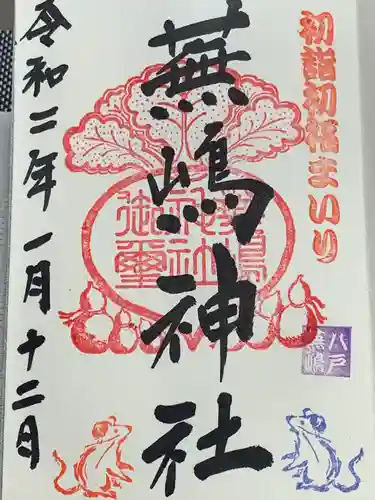 初詣初蕪まいり
蕪嶋神社
令和二年一月十二日
蕪嶋
神社
御璽
八戸
蕪嶋